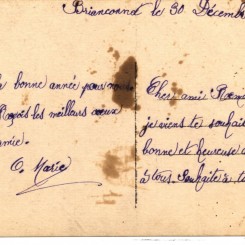 Briançonnet le 30 Décemb
bonne année pour
Après les meilleurs vœux
amie.
O. Marie
Cher ami
je viens te souhai
bonne et heureuse
à tous. Souhaite à